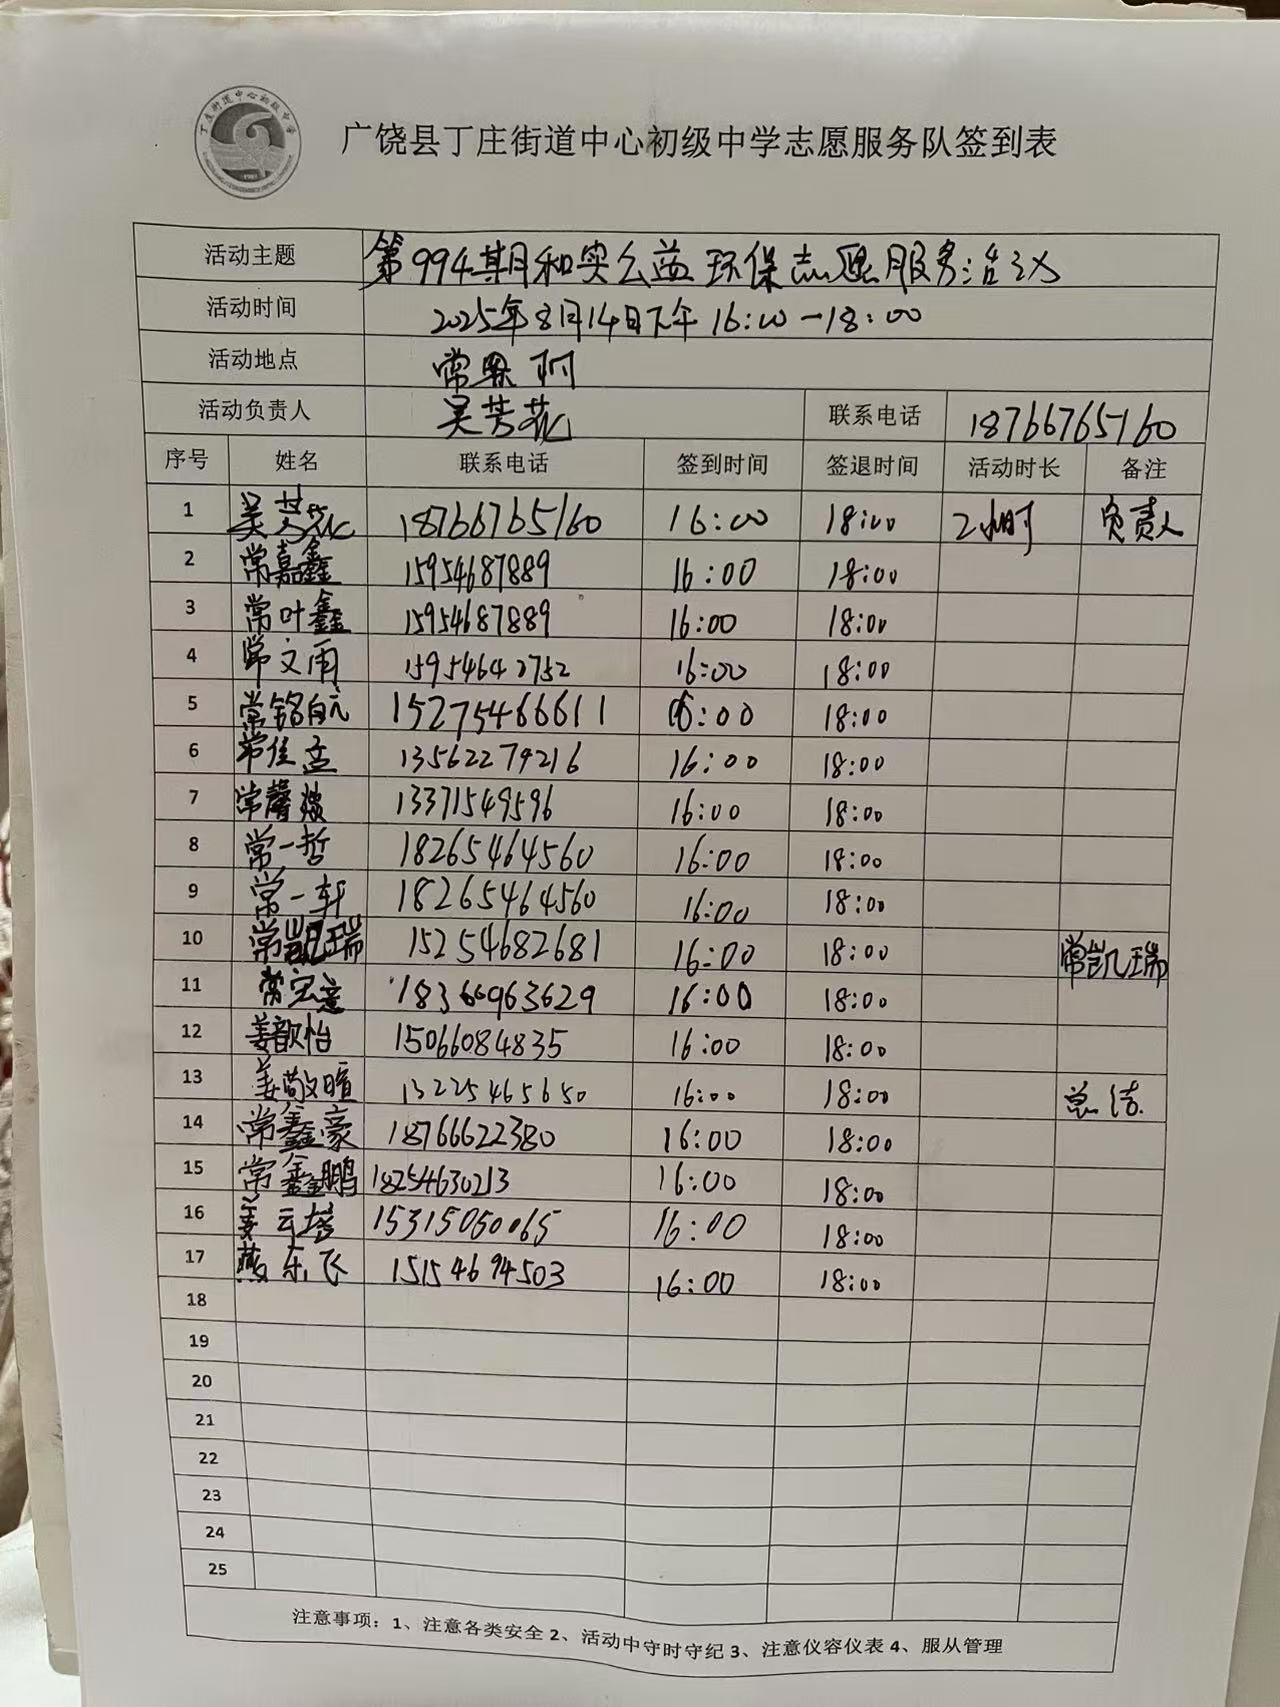 丁庄街道中心初级中学
广饶县丁庄街道中心初级中学志愿服务队签到表
活动主题 第994期和实公益环保志愿服务活动
活动时间 2025年8月14日下午16:00—18:00
活动地点 常
活动负责人 吴芳花 联系电话 18766765160
序号 姓名 联系电话 签到时间 签退时间 活动时长 备注
1 吴芳花 18766765160 16:00 18:00 2小时 负责人
2 常嘉鑫 15954687889 16:00 18:00
3 常叶鑫 15954687889 16:00 18:00
4 常文雨 15954642752 16:00 18:00
5 常铭航 15275466611 16:00 18:00
6 常佳孟 13562279216 16:00 18:00
7 常馨 13371549596 16:00 18:00
8 常一哲 18265464560 16:00 18:00
9 常一轩 18265464560 16:00 18:00
10 常凯瑞 15254682681 16:00 18:00 常凯瑞
11 常宏意 18366963629 16:00 18:00
12 姜歆怡 15066084835 16:00 18:00
13 姜敬暄 13225465650 16:00 18:00 总结
14 常鑫豪 18766622380 16:00 18:00
15 常鑫鹏 18254630213 16:00 18:00
16 姜云 15315060065 16:00 18:00
17 燕东飞 15154694503 16:00 18:00
18
19
20
21
22
23
24
25
注意事项：1、注意各类安全 2、活动中守时守纪 3、注意仪容仪表 4、服从管理